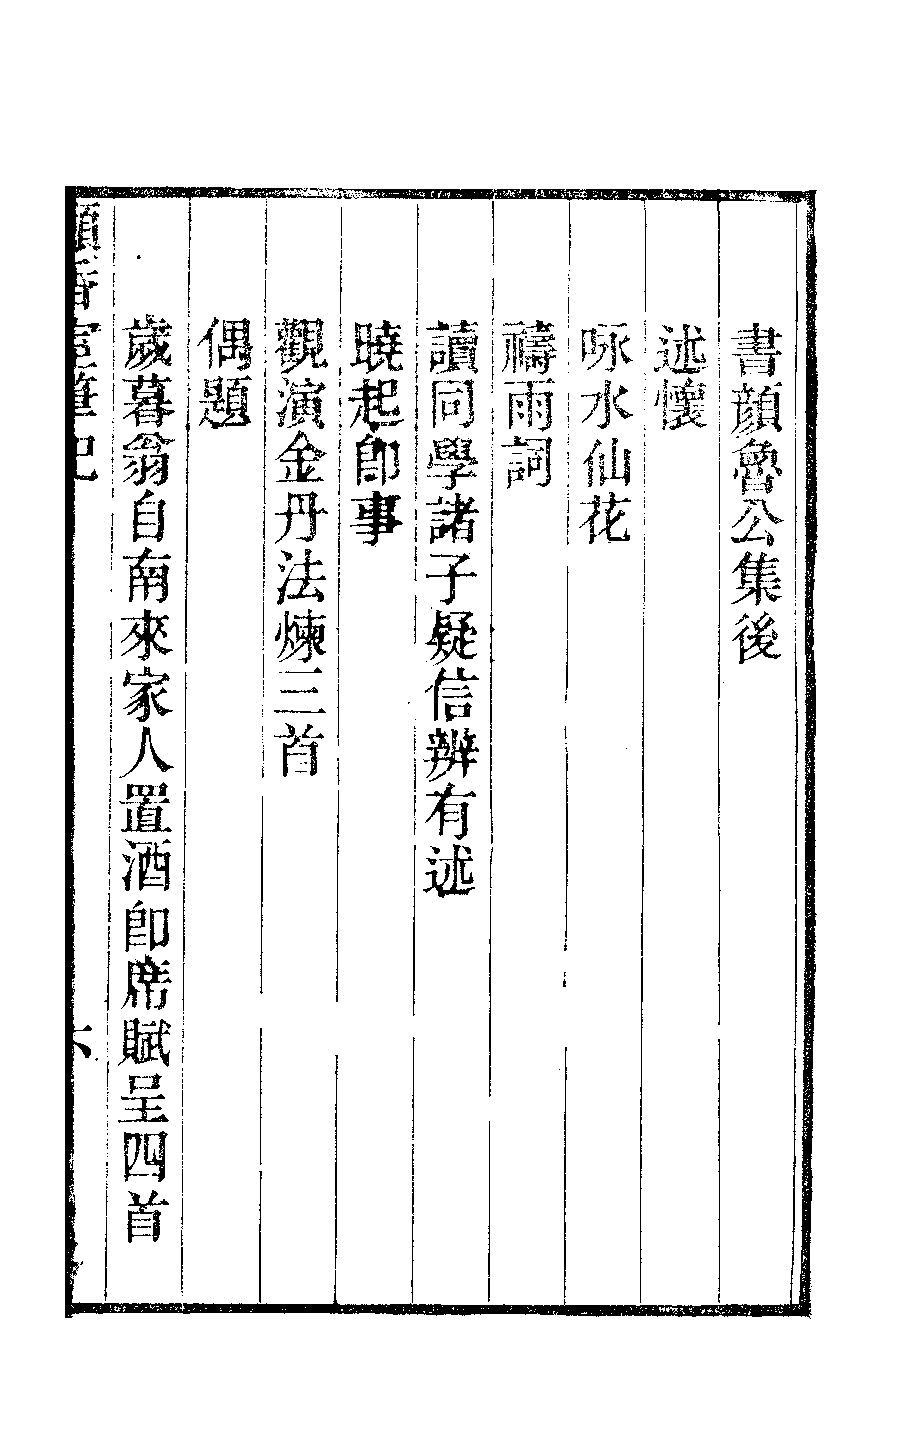 書顔魯公集後
述懷
咏水仙花
禱雨詞
讀同學諸子疑信辨有述
曉起卽事
觀演金丹法煉三首
偶題
歲暮翁自南來家人置酒卽席賦呈四首